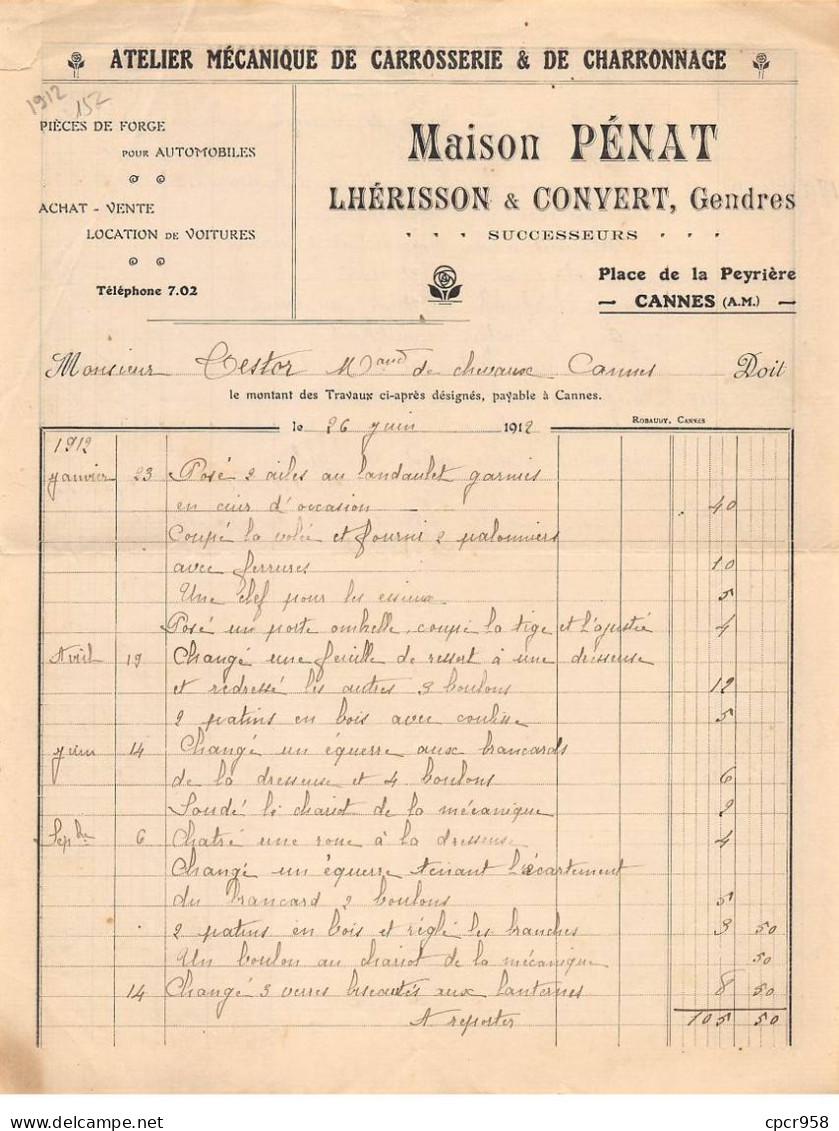 ATELIER MÉCANIQUE DE CARROSSERIE & DE CHARRONNAGE
1912 152
PIÈCES DE FORGE
POUR AUTOMOBILES
ACHAT - VENTE
LOCATION DE VOITURES
Téléphone 7.02
Maison PÉNAT
LHÉRISSON & CONVERT, Gendres
SUCCESSEURS
Place de la Peyrière
CANNES (A.M.)
Monsieur Testor Mand de chevaux Cannes Doit
le montant des Travaux ci-après désignés, payable à Cannes.
le 26 juin 1912
ROBAUDY, CANNES
1912
Janvier 23 Posé 2 ailes au landaulet garnies
en cuir d'occasion 40
Coupé la volée et fourni 2 palonniers
avec ferrures 10
Une clef pour les essieux 5
Posé un porte ombelle, coupé la tige et l'ajustée 4
Avril 19 Changé une feuille de ressort à une dresseuse
et redressé les autres 3 boulons 12
2 patins en bois avec coulisse 5
Juin 14 Changé un équerre aux brancards
de la dresseuse et 4 boulons 6
Soudé le chariot de la mécanique 2
Sepbre 6 Chatré une roue à la dresseuse 4
Changé un équerre tenant l'écartement
du brancard 2 boulons 5
2 patins en bois et réglé les branches 3 50
Un boulon au chariot de la mécanique 50
14 Changé 3 verres biseautés aux lanternes 8 50
A reporter 105 50
cpcr958